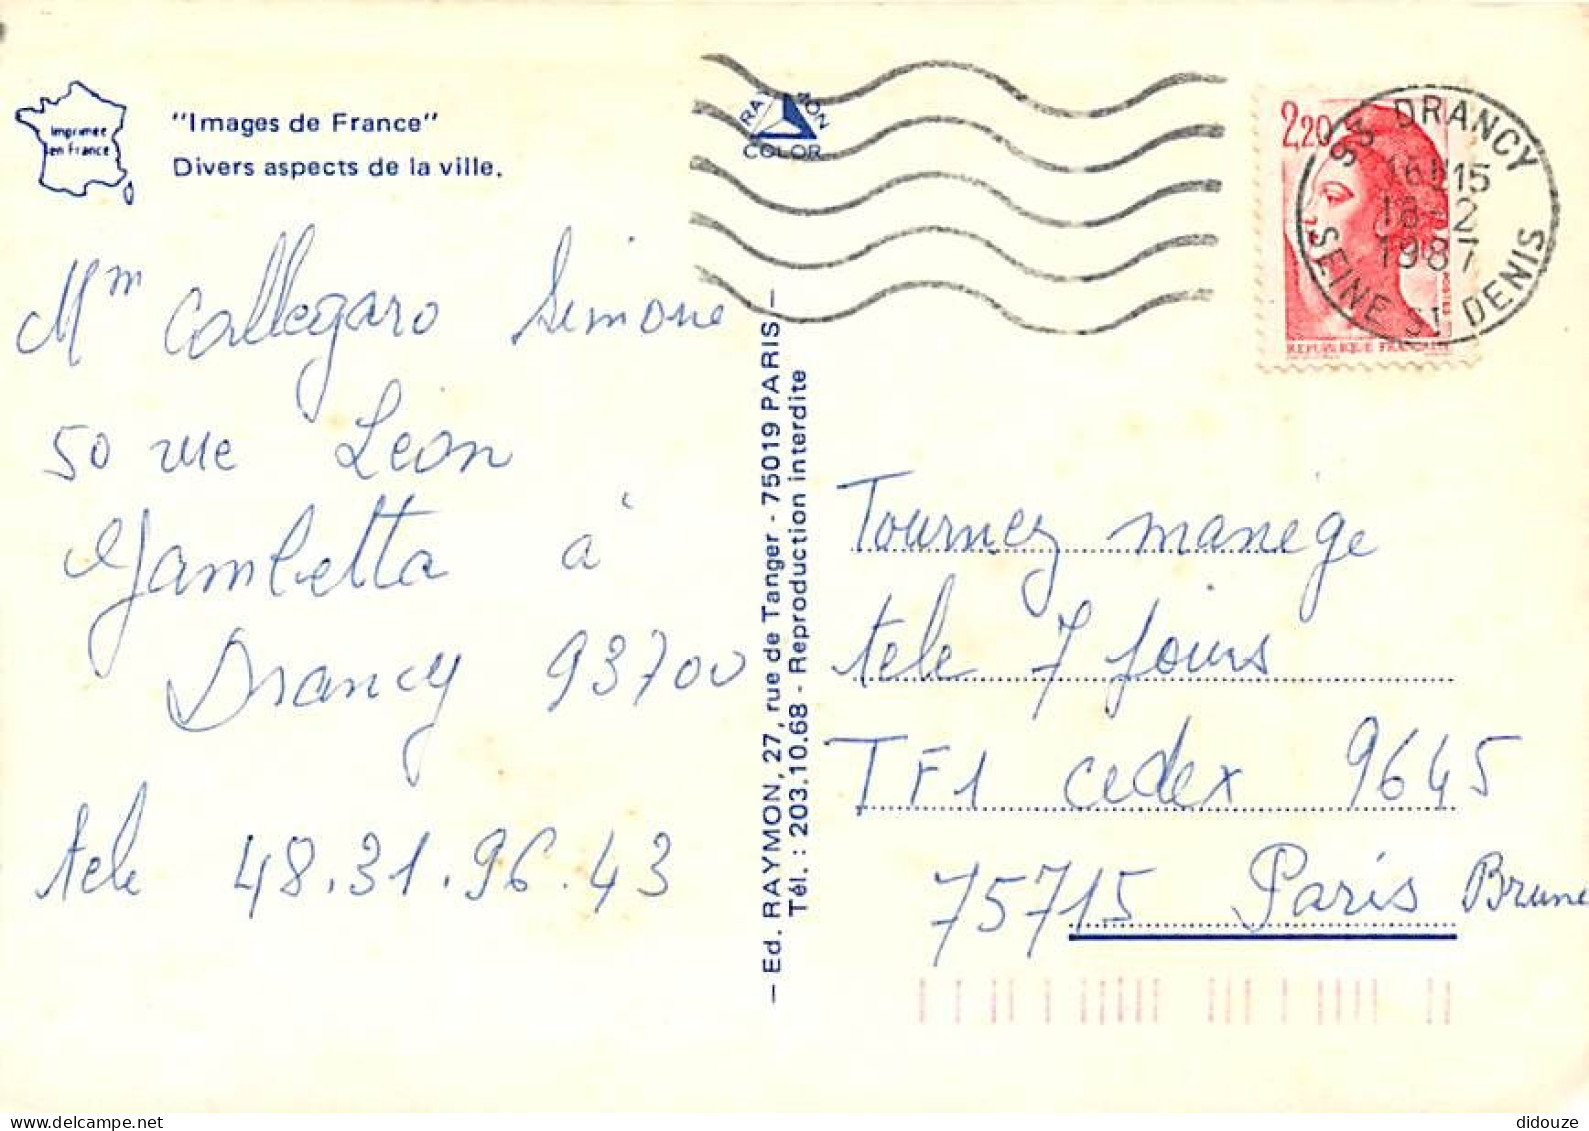 Imprimée
en France
"Images de France"
Divers aspects de la ville.
RAYMON
COLOR
2,20
REPUBLIQUE FRANÇAISE
93 DRANCY
16H15
18-2
1987
SEINE ST DENIS
Mm Callegaro Simone
50 rue Leon
Gambetta à
Drancy 93700
tele 48.31.96.43
— Ed. RAYMON, 27, rue de Tanger - 75019 PARIS —
Tél. : 203.10.68 - Reproduction interdite
Tournez manège
tele 7 jours
TF1 cedex 9645
75715 Paris Brune
didouze